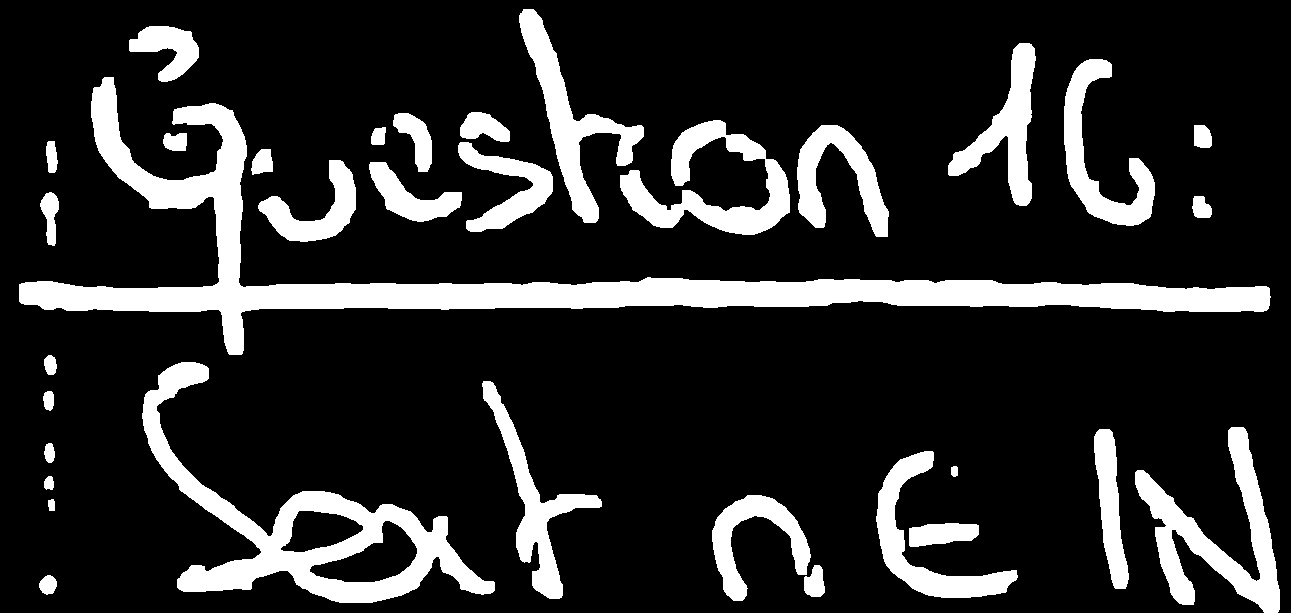 Question 16:
Soit n ∈ ℕ